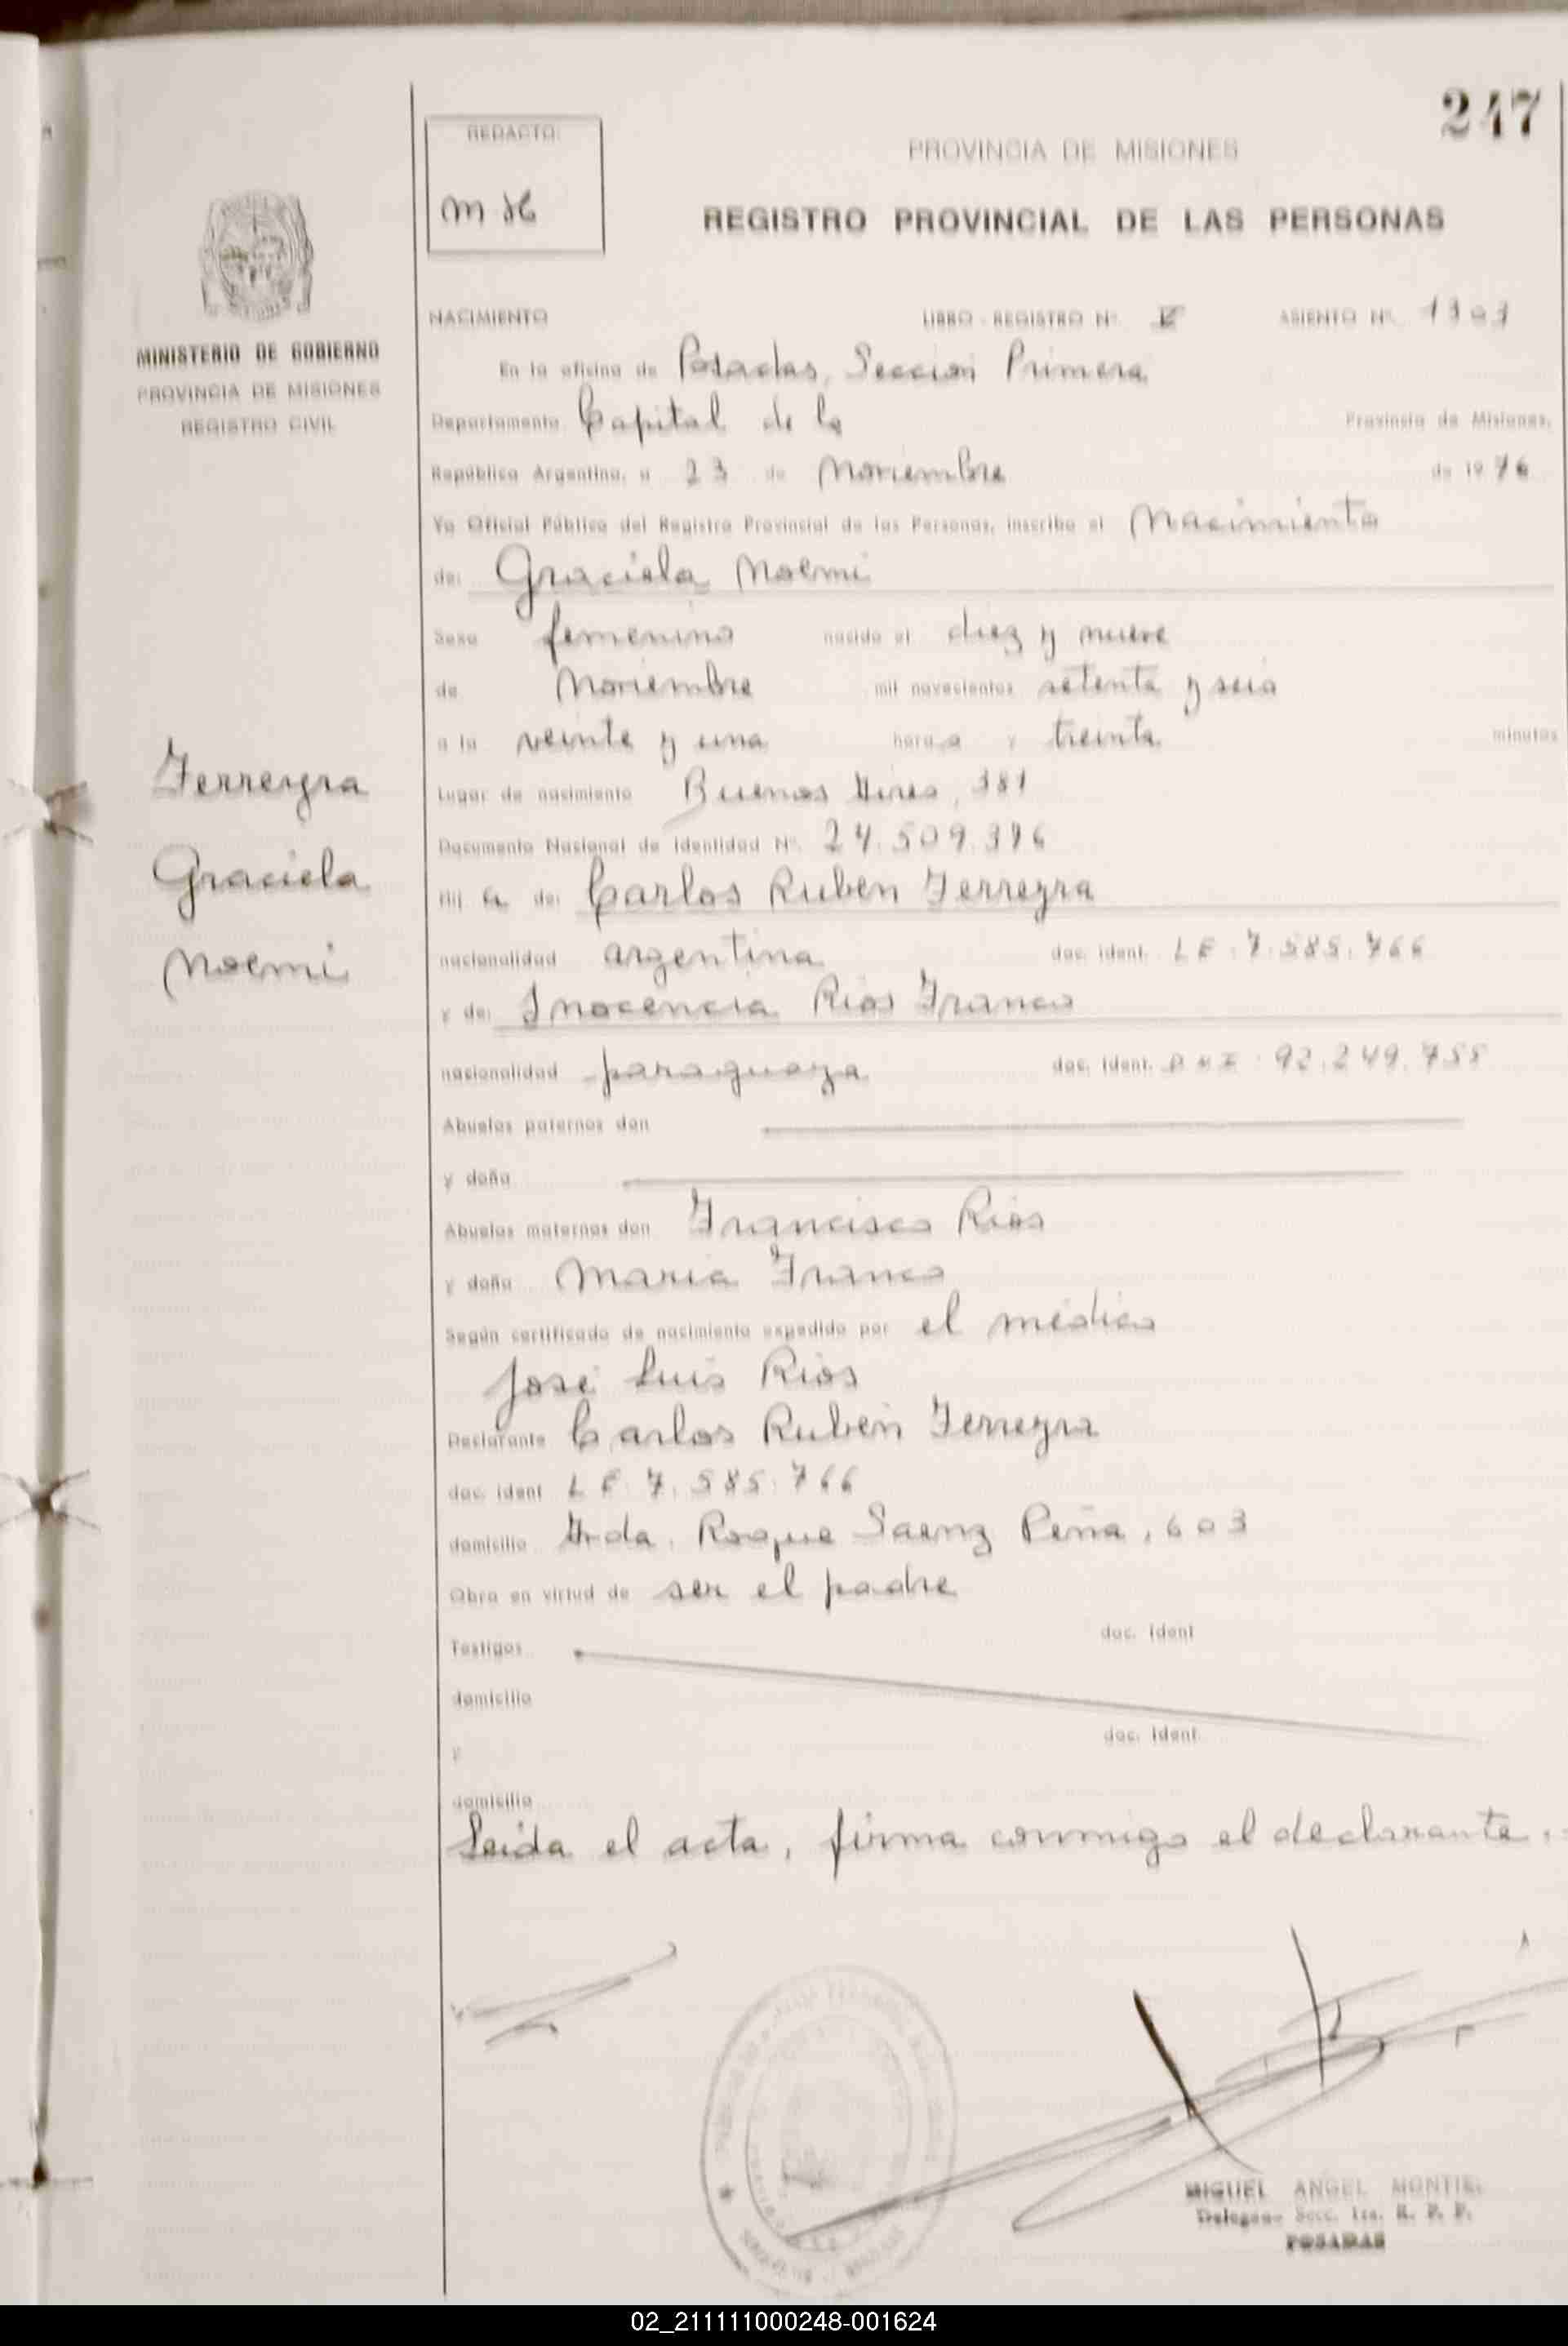 247
REDACTO:
PROVINCIA DE MISIONES
REGISTRO PROVINCIAL DE LAS PERSONAS
MINISTERIO DE GOBIERNO
PROVINCIA DE MISIONES
REGISTRO CIVIL
NACIMIENTO LIBRO - REGISTRO Nº. V ASIENTO Nº. 1303
En la oficina de Posadas, Seccion Primera
Departamento Capital de la Provincia de Misiones,
República Argentina, a 23 de Noviembre de 1976
Yo Oficial Público del Registro Provincial de las Personas, inscribo el Nacimiento
de: Graciela Noemi
Sexo femenino nacido el diez y nueve
de Noviembre mil novecientos setenta y seis
a la veinte y una horas y treinta minutos
Lugar de nacimiento Buenos Aires, 381
Documento Nacional de Identidad Nº. 24.509.396
Hij a de: Carlos Ruben Ferreyra
nacionalidad argentina doc. ident. LE. 7.585.766
y de: Inocencia Rios Franco
nacionalidad paraguaya doc. ident. DNI. 92.249.755
Abuelos paternos don
y doña
Abuelos maternos don Francisco Rios
y doña Maria Franco
Según certificado de nacimiento expedido por el médico
José Luis Rios
Declarante Carlos Rubén Ferreyra
doc. ident LE. 7.585.766
domicilio Avda. Roque Saenz Peña, 603
Obra en virtud de ser el padre
Testigos doc. ident
domicilio
y doc. ident.
domicilio
Leida el acta, firma conmigo el declarante.
Ferreyra
Graciela
Noemi
MIGUEL ANGEL MONTIEL
Delegado Secc. 1ra. R. P. P.
POSADAS
02_211111000248-001624